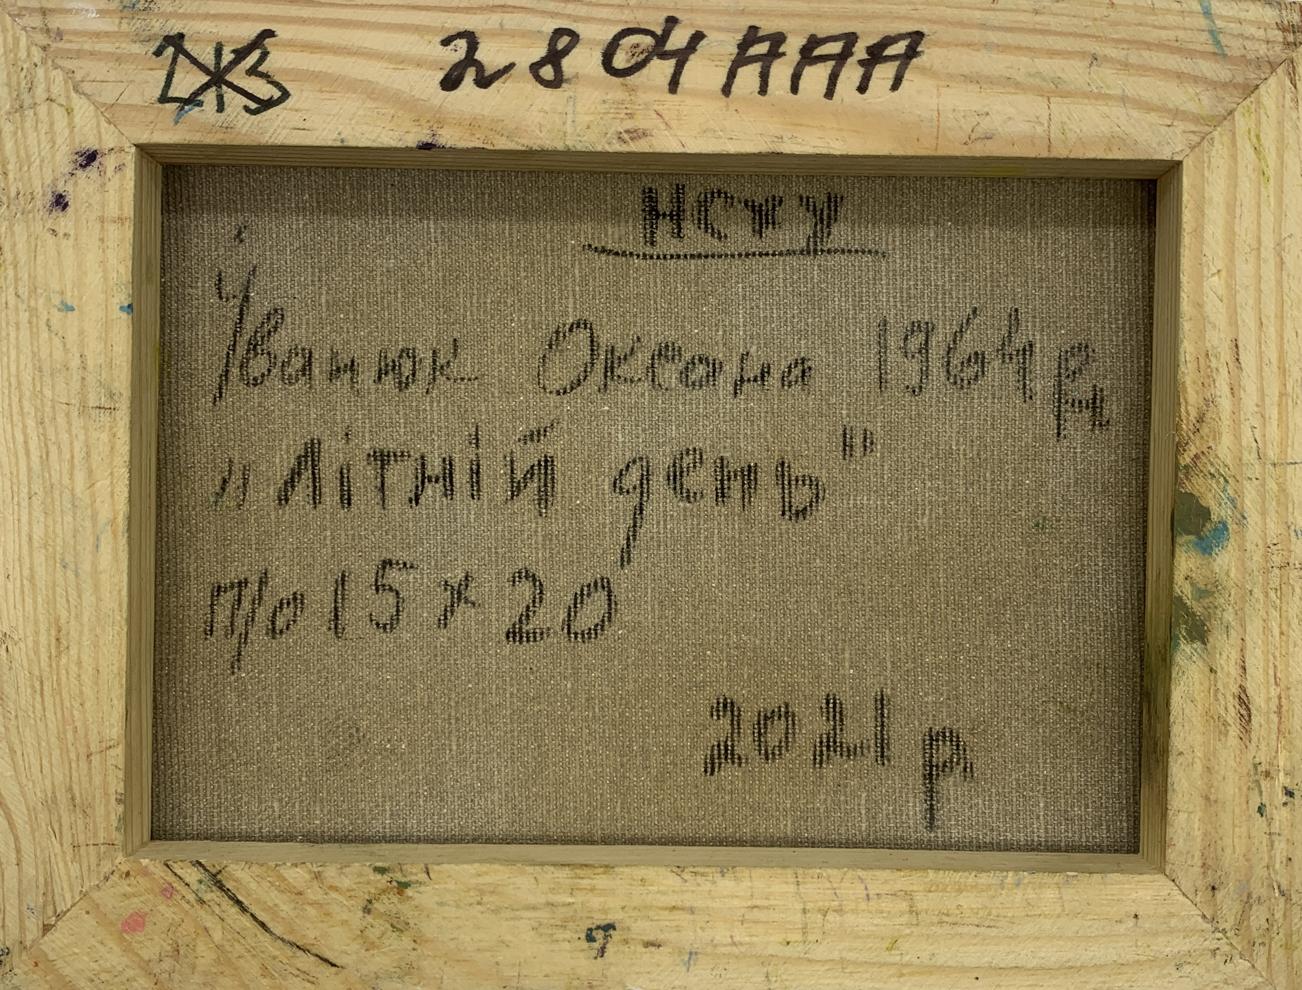 2804AAA
НСХУ
Іванюк Оксана 1964 р.н.
"Літній день"
п/о 15 х 20
2021 р